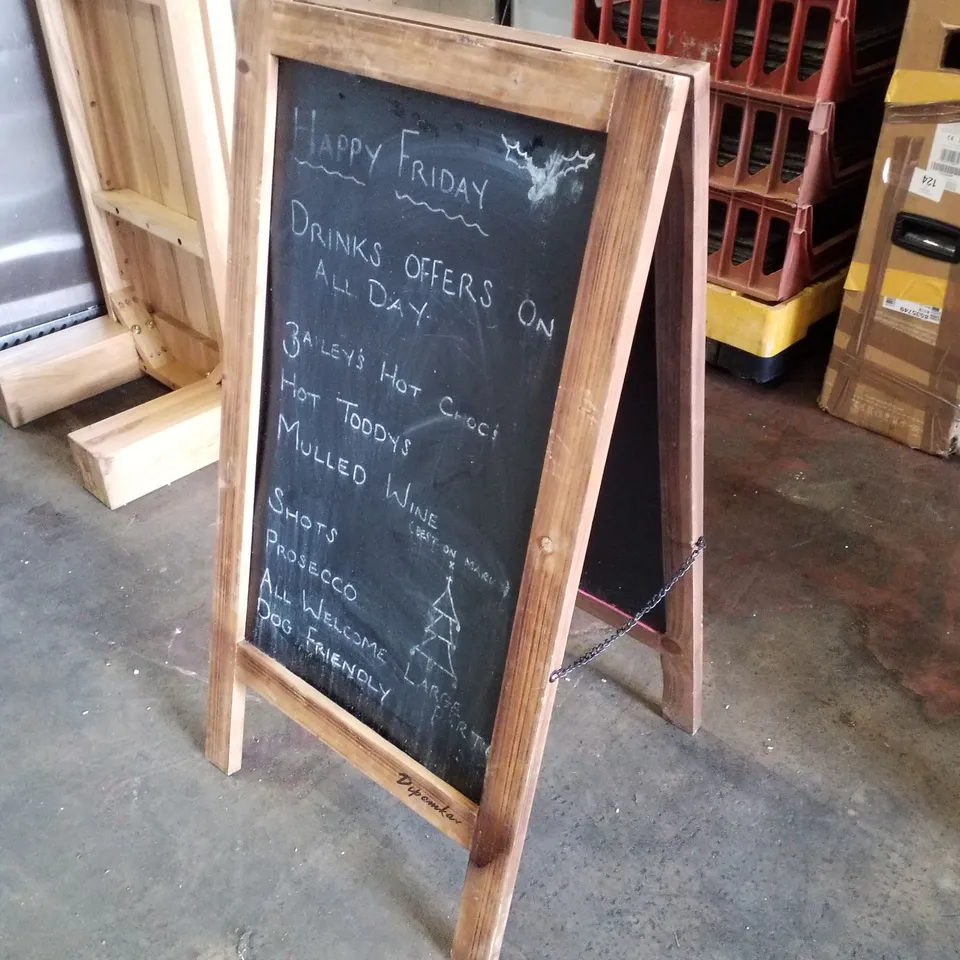 HAPPY FRIDAY
DRINKS OFFERS ON
ALL DAY.
BAILEY'S HOT CHOCS
HOT TODDYS
MULLED WINE
(BEST ON MARKET
SHOTS
PROSECCO
ALL WELCOME
DOG FRIENDLY
LARGE
Dipemkar
124